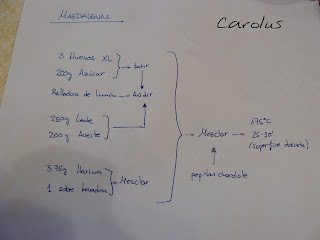 MAGDALENAS
Carolus
3 Huevos XL
200g Azúcar
batir
Ralladura de Limón
Añadir
250g Leche
200g Aceite
375g Harina
1 sobre Levadura
Mezclar
Mezclar
pepitas chocolate
175ºC
25-30'
(superficie dorada)